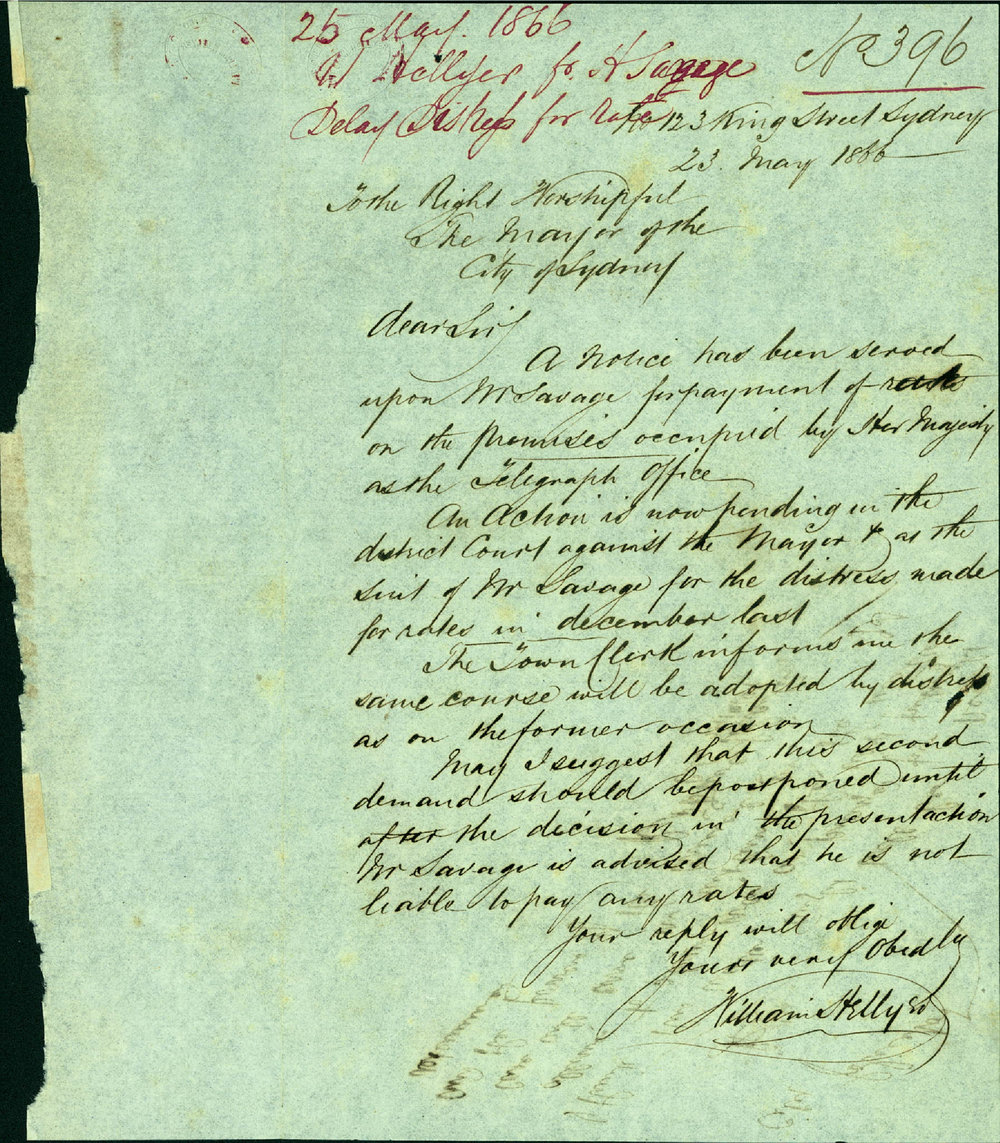 25 May. 1866
W Hellyer fr. H Savage
Delay Distress for rate
No 396
No 123 King Street Sydney
23. May 1866
To the Right Worshipful
The Mayor of the
City of Sydney
Dear Sir
A Notice has been served
upon Mr Savage for payment of rates
on the premises occupied by Her Majesty
as the Telegraph Office
An Action is now pending in the
district Court against the Mayor & at the
suit of Mr Savage for the distress made
for rates in december last
The Town Clerk informs me the
same course will be adopted by distress
as on the former occasion
May I suggest that this second
demand should be postponed until
after the decision in the present action
Mr Savage is advised that he is not
liable to pay any rates
Your reply will oblige
Yours very Obedly
William Hellyer